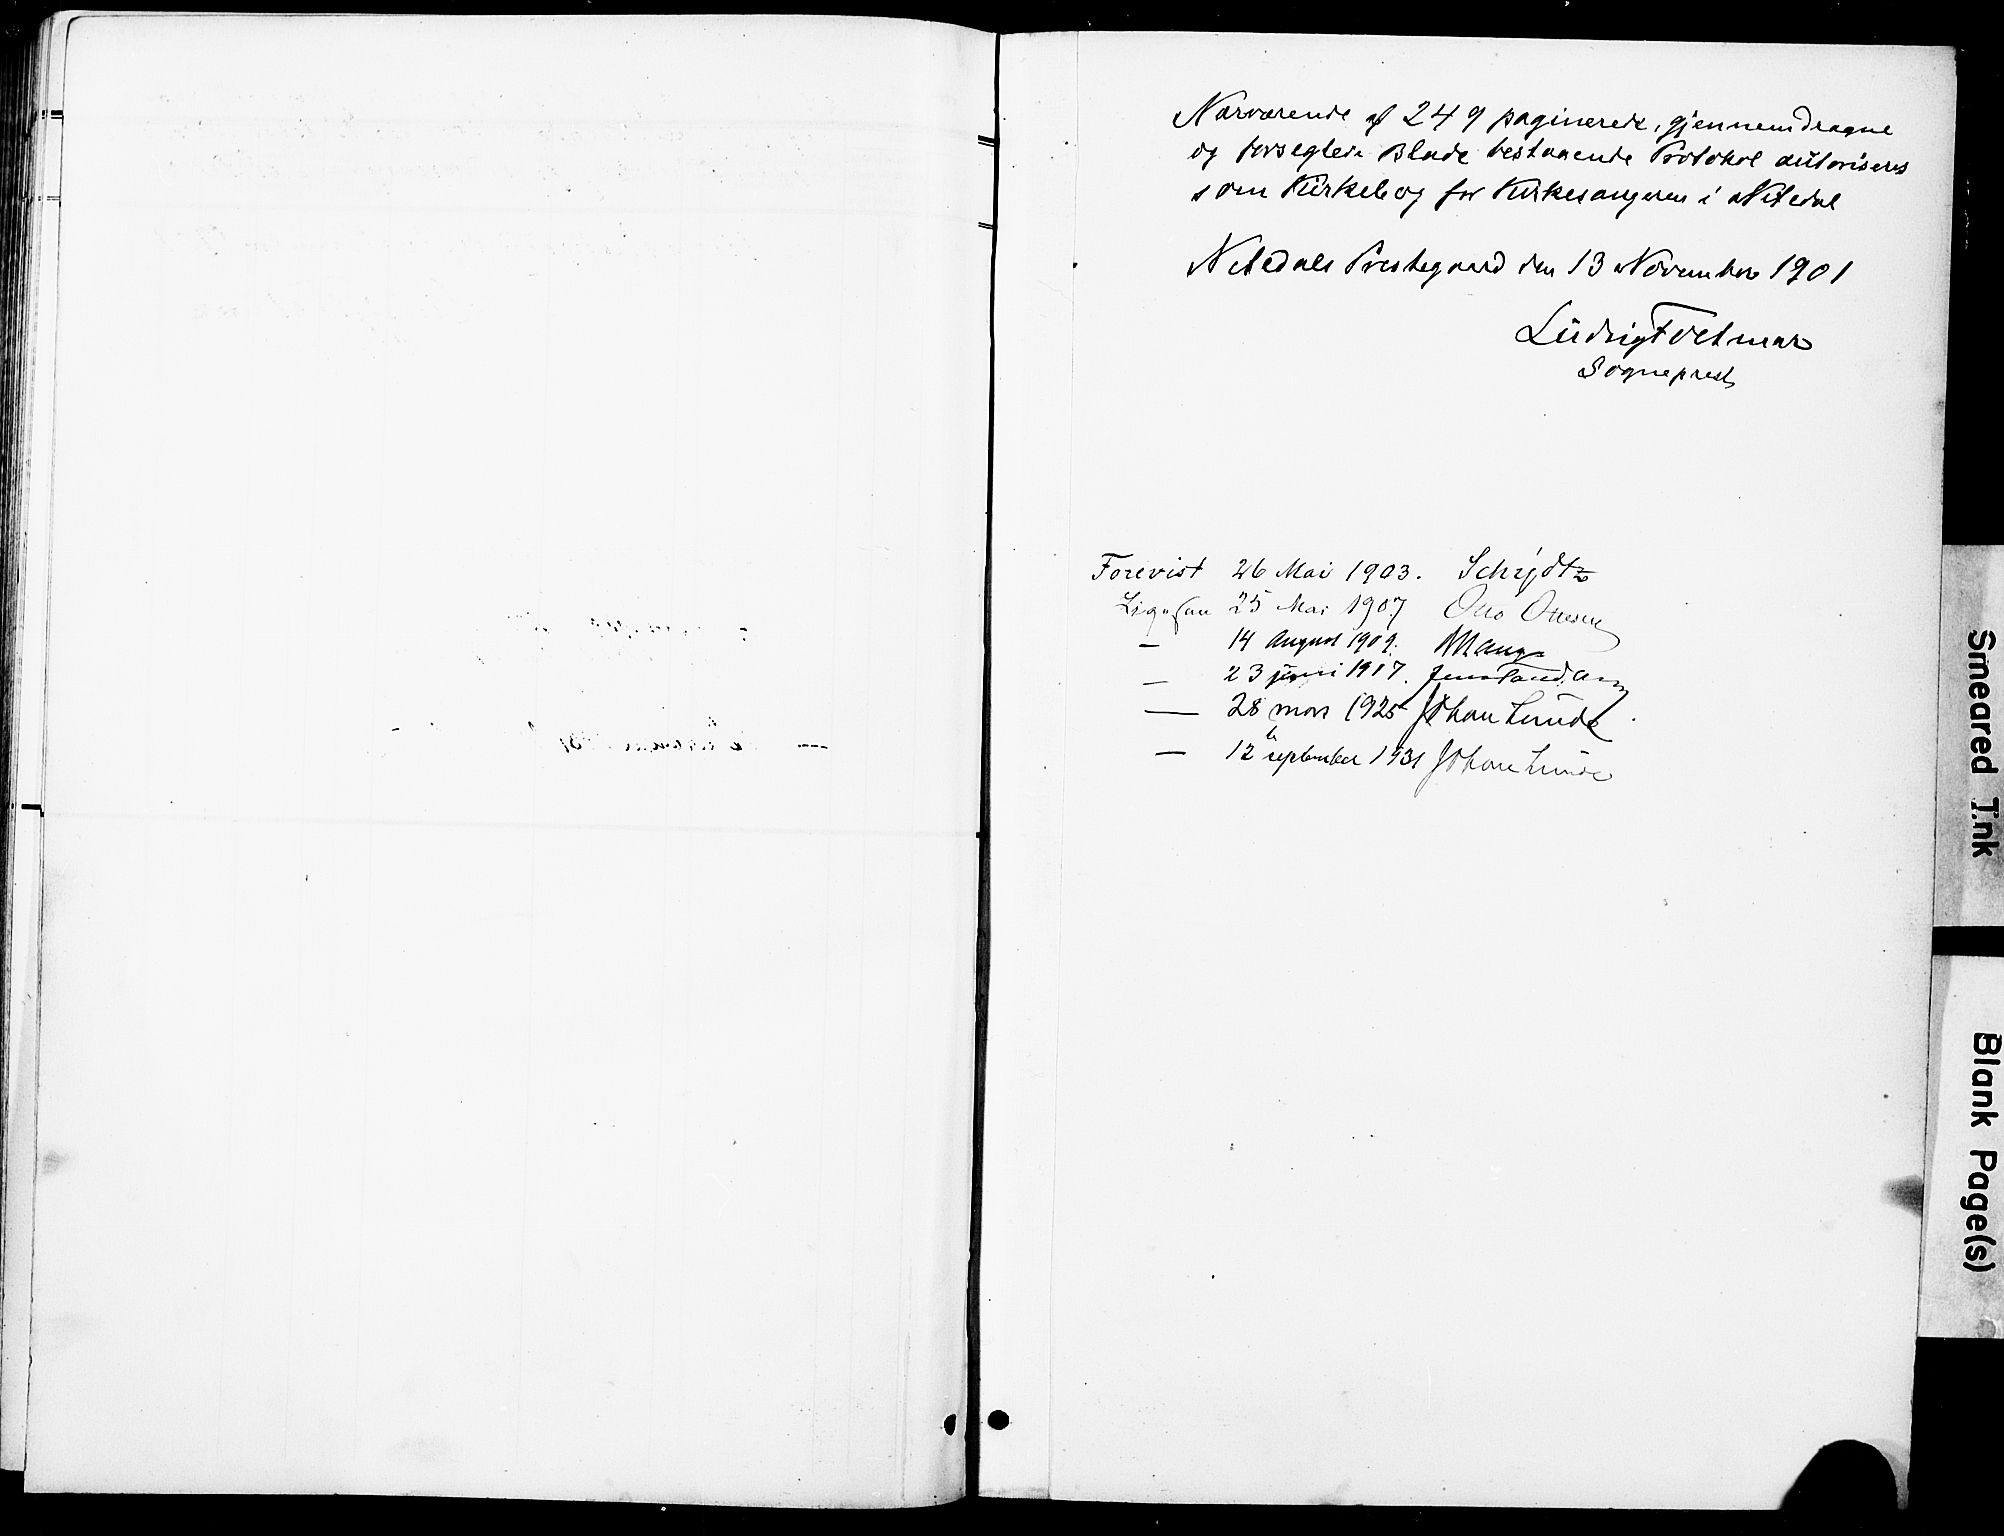 Nærværende af 249 paginerede, gjennemdragne
og forseglede Blade bestaaende Protokol autoriseres
som Kirkebog for Kirkesangeren i Nitedal
Nitedals Prestegaard den 13 November 1901
Ludvig
Sogneprest
Forevist 26 Mai 1903. Schjødtz
Ligesaa 25 Mai 1907 Otto Ottesen
— 14 August 1909.
— 23 juni 1917. Jens Tandberg
— 28 mars 1925 Johan Lunde
— 12 september 1931 Johan Lunde
Smeared Ink
Blank Page(s)